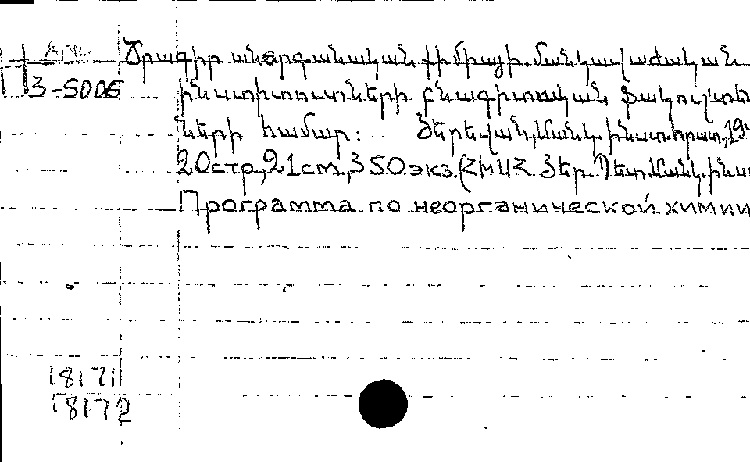 Ծրագիր անօրգանական քիմիայի մանկավաժական
3-5006 ինստիտուտների բնագիտական ֆակուլտետ
ների համար: Երեվան, մանկ. ինստ. հրատ, 19
20стр, 21см, 350экз. (ՀՍՍՀ Հեր. Պետ. մանկ. ինստ
Программа по неорганической химии
18171
18172